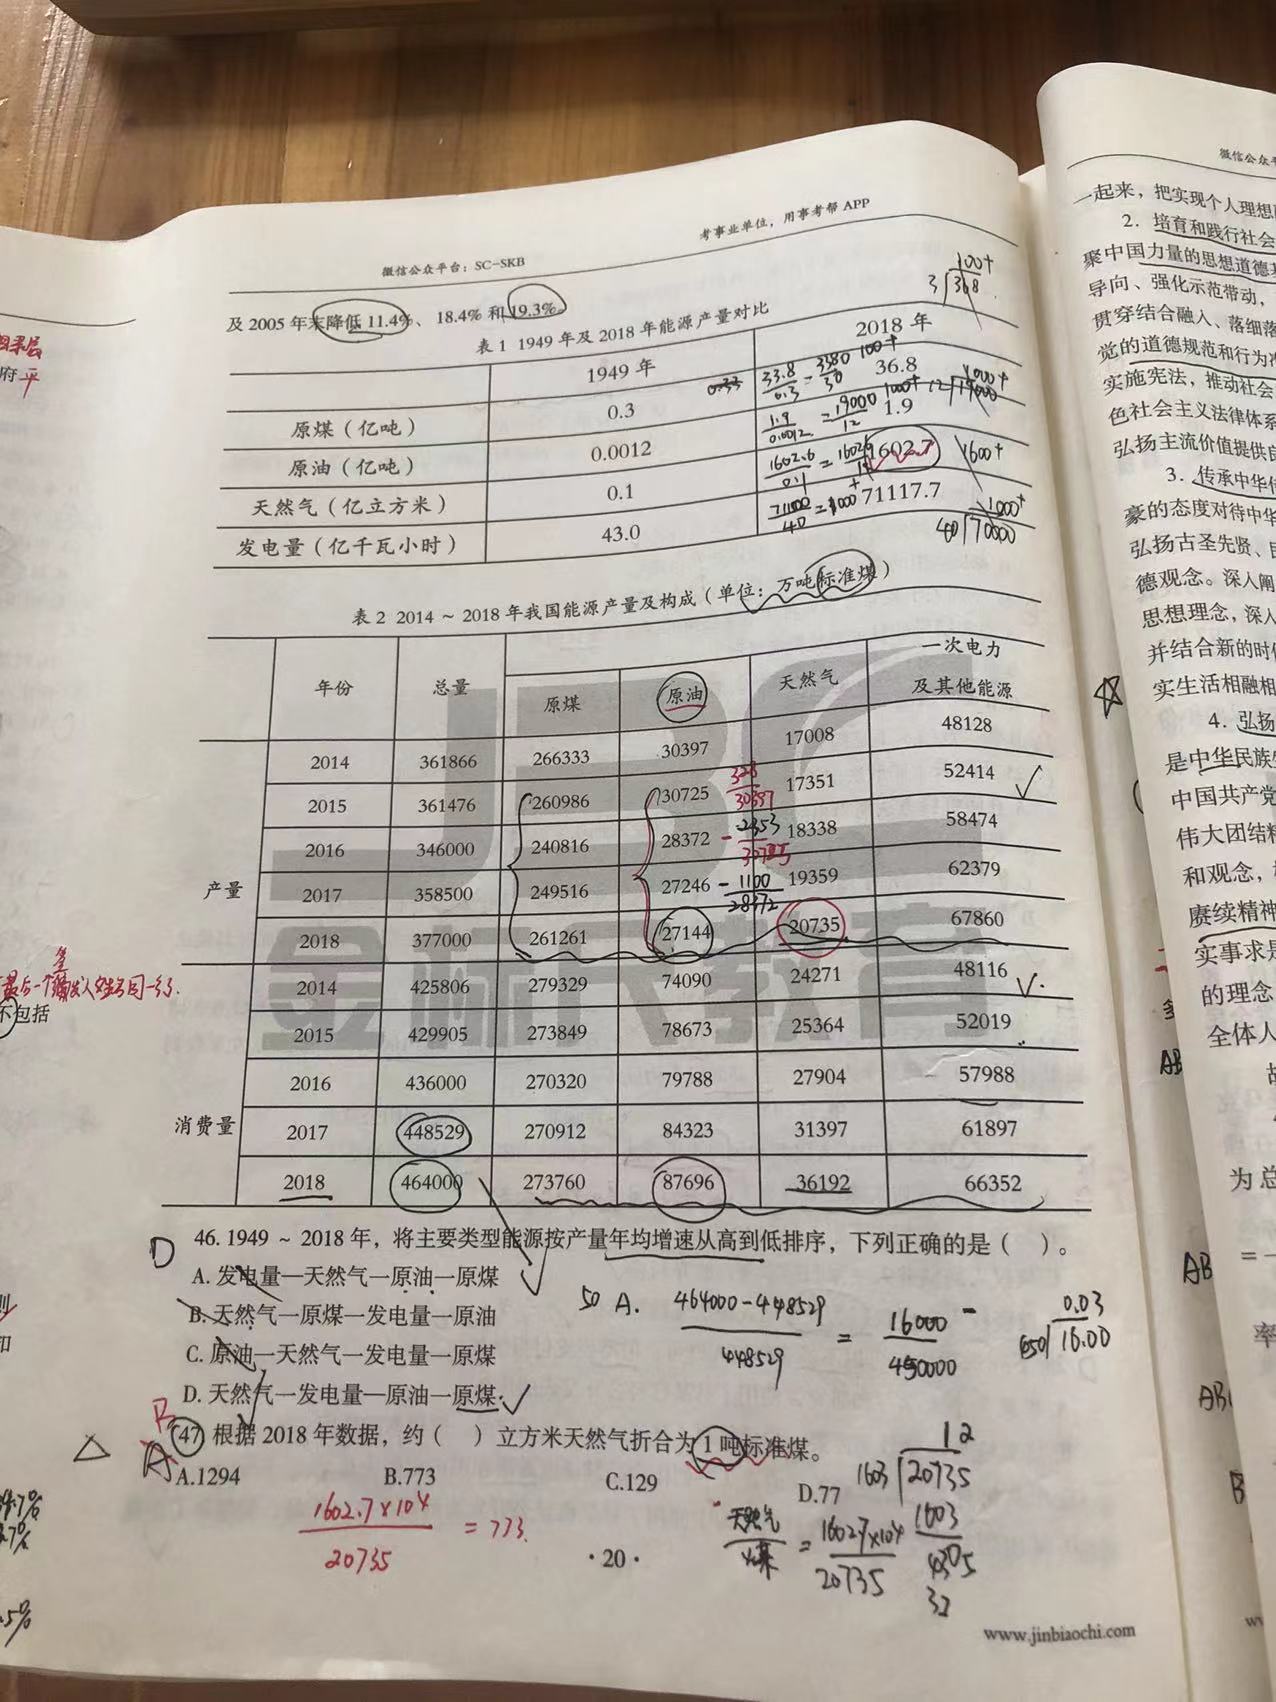 微信公众平台：SC-SKB
考事业单位，用事考帮 APP
及 2005 年末降低 11.4%、18.4% 和 19.3%。
表 1 1949 年及 2018 年能源产量对比
1949 年 2018 年
原煤（亿吨） 0.3 36.8
原油（亿吨） 0.0012 1.9
天然气（亿立方米） 0.1 1602.7
发电量（亿千瓦小时） 43.0 71117.7
表 2 2014～2018 年我国能源产量及构成（单位：万吨标准煤）
年份 总量 原煤 原油 天然气 一次电力
及其他能源
产量
2014 361866 266333 30397 17008 48128
2015 361476 260986 30725 17351 52414
2016 346000 240816 28372 18338 58474
2017 358500 249516 27246 19359 62379
2018 377000 261261 27144 20735 67860
消费量
2014 425806 279329 74090 24271 48116
2015 429905 273849 78673 25364 52019
2016 436000 270320 79788 27904 57988
2017 448529 270912 84323 31397 61897
2018 464000 273760 87696 36192 66352
D
46. 1949～2018 年，将主要类型能源按产量年均增速从高到低排序，下列正确的是（ ）。
A. 发电量—天然气—原油—原煤
B. 天然气—原煤—发电量—原油
C. 原油—天然气—发电量—原煤
D. 天然气—发电量—原油—原煤
50 A. 464000-448529
448529
= 16000
450000
0.03
16.00
47 根据 2018 年数据，约（ ）立方米天然气折合为 1 吨标准煤。
A.1294 B.773 C.129 D.77
1602.7×10⁴
20735
= 773.
天然气
煤
= 1602.7×10⁴
20735
12
1603 20735
1603
·20·
www.jinbiaochi.com
金标尺教育
不包括
一起来，把实现个人理想
2. 培育和践行社会
聚中国力量的思想道德
导向、强化示范带动，
贯穿结合融入、落细落
觉的道德规范和行为准
实施宪法，推动社会
色社会主义法律体系
弘扬主流价值提供良
3. 传承中华
豪的态度对待中华
弘扬古圣先贤、
德观念。深入阐
思想理念，深入
并结合新的时
实生活相融相
4. 弘扬
是中华民族
中国共产党
伟大团结精
和观念，
赓续精神
实事求是
的理念
全体人
为总
AB
AB
AB